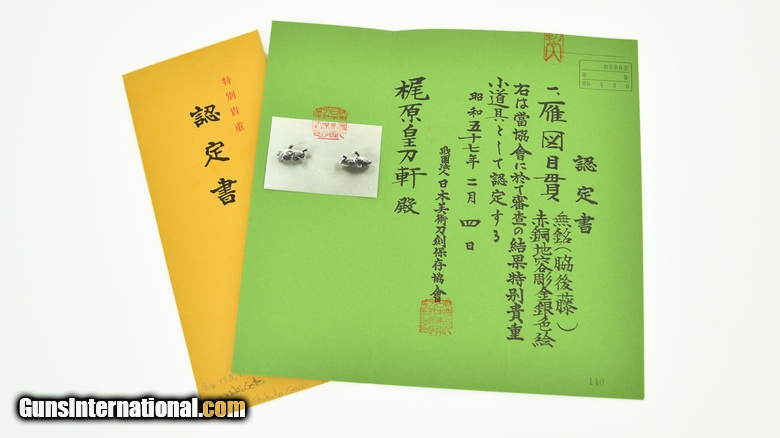 認定書
一、雁図目貫
無銘(脇後藤)
赤銅地容彫金銀色絵
右は當協會に於て審査の結果特別貴重
小道具として認定する
昭和五十七年二月四日
財團法人日本美術刀剣保存協會
梶原皇刀軒殿
140
特別貴重
認定書
GunsInternational.com